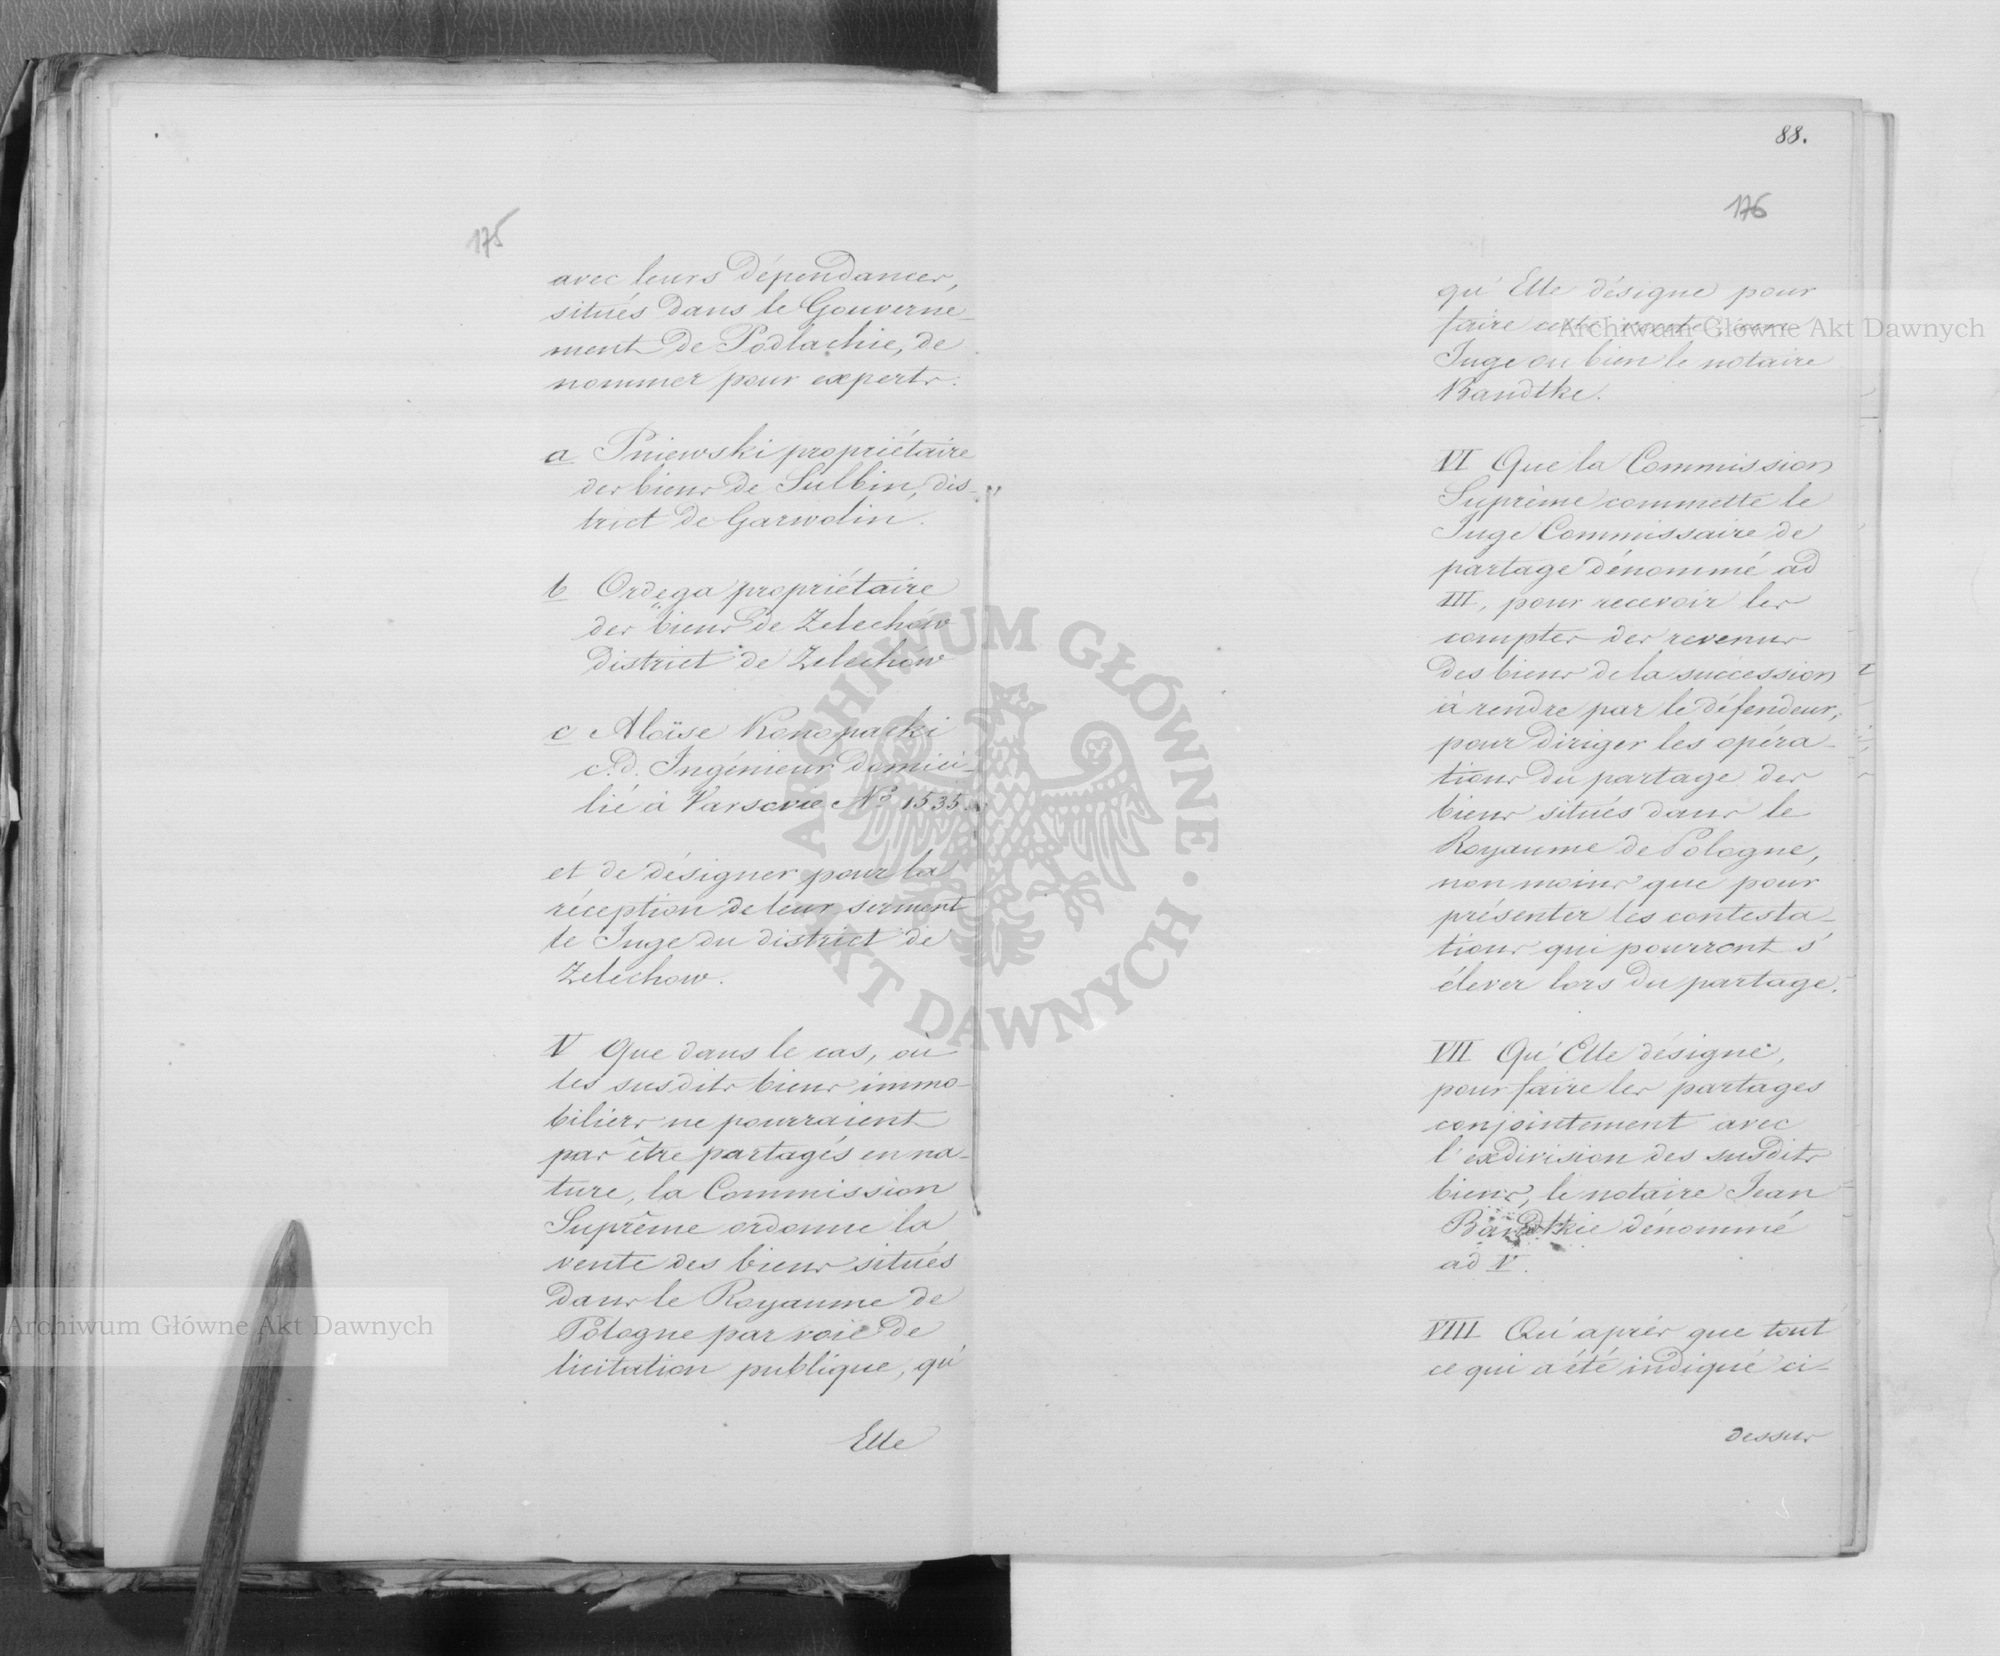 175
avec leurs dépendances,
situés dans le Gouverne-
ment de Podlachie, de
nommer pour experts.
a Pniewski propriétaire
des biens de Sulbin, dis-
trict de Garwolin.
b Ordęga propriétaire
des biens de Żelechów
district de Żelechow
c Aloïse Konopacki
c.d. Ingénieur domici-
lié à Varsovie No 1535.
et de désigner pour la
réception de leur serment
le Juge du district de
Żelechow.
V Que dans le cas, où
les susdits biens immo-
biliers ne pourraient
pas être partagés en na-
ture, la Commission
Suprême ordonne la
vente des biens situés
dans le Royaume de
Pologne par voie de
licitation publique, qu'
Elle
88.
176
qu'Elle désigne pour
faire cette vente un
Juge ou bien le notaire
Bandtke.
VI Que la Commission
Suprème commette le
Juge Commissaire de
partage dénommé ad
III, pour recevoir les
comptes des revenus
des biens de la succession
à rendre par le défendeur,
pour diriger les opéra-
tions du partage des
biens situés dans le
Royaume de Pologne,
non moins que pour
présenter les contesta-
tions qui pourront s'
élever lors du partage.
VII Qu'Elle désigne,
pour faire les partages
conjointement avec
l'exdivision des susdits
biens, le notaire Jean
Bandtkie dénommé
ad V.
VIII Qu'après que tout
ce qui a été indiqué ci-
dessus
Archiwum Główne Akt Dawnych
Archiwum Główne Akt Dawnych
ARCHIWUM GŁÓWNE · AKT DAWNYCH ·